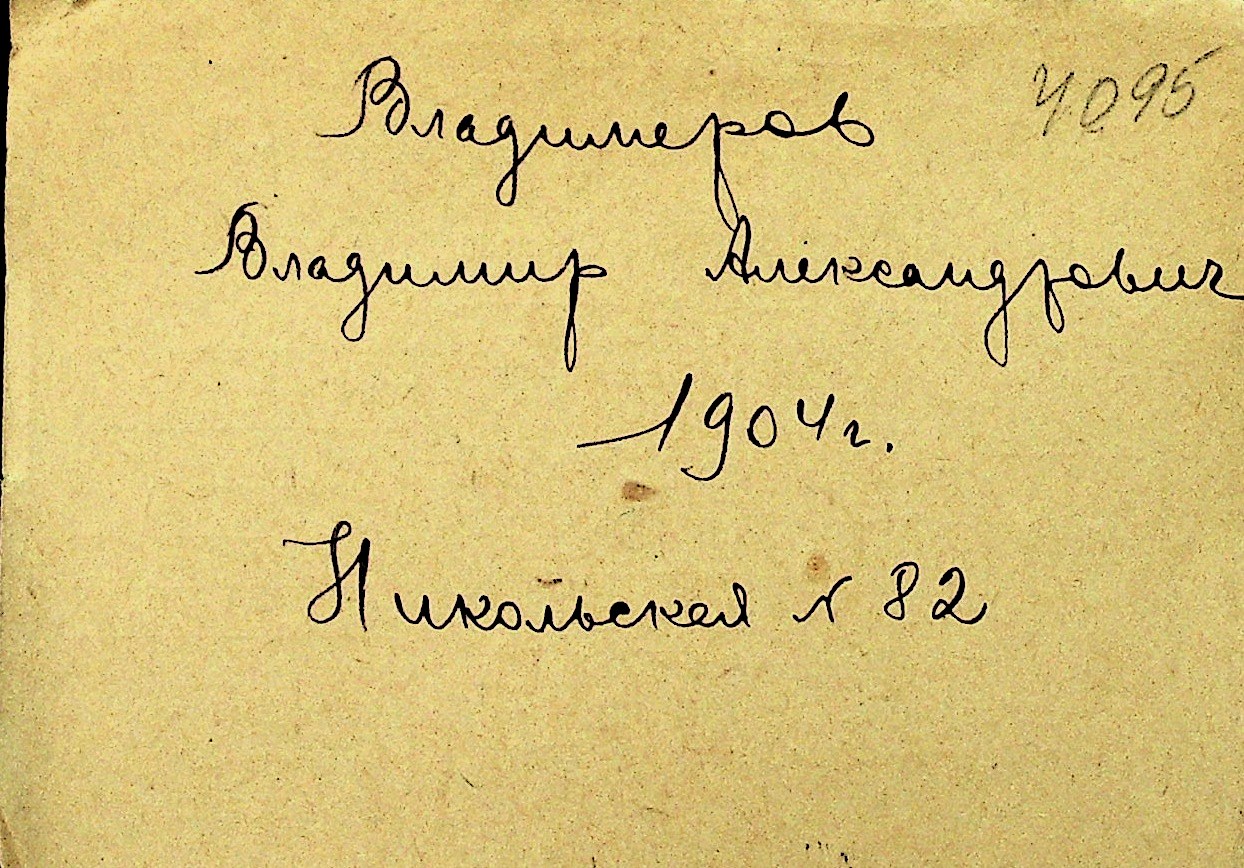 4095
Владимеров
Владимир Александрович
1904 г.
Никольская № 82